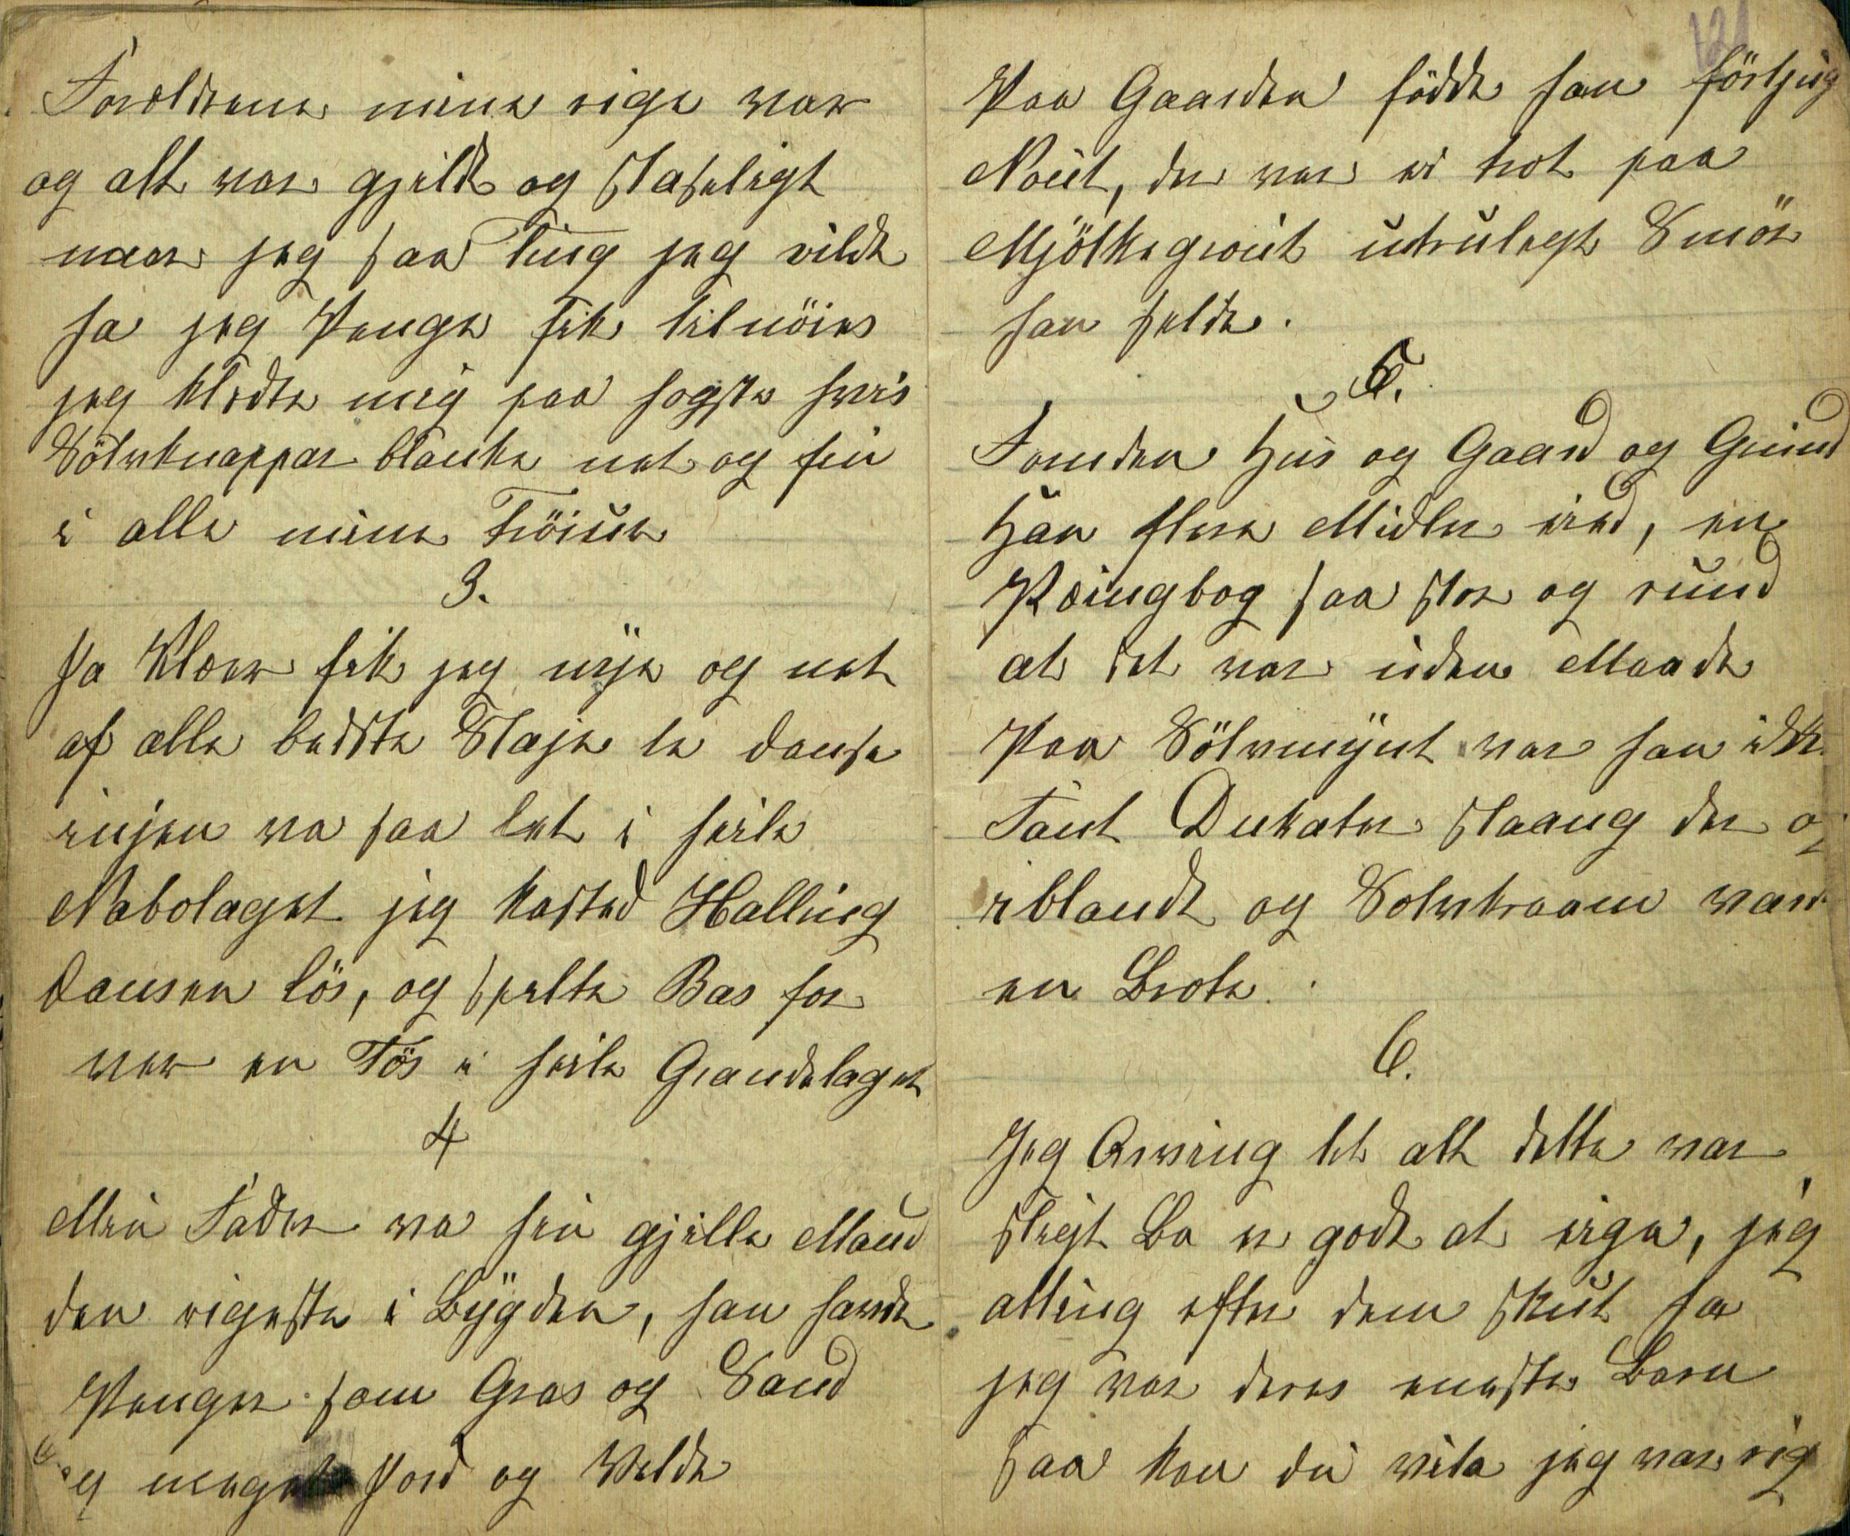 Foreldrene mine rige var
og alt var gjildt og staseligt
naar jeg saa Ting jeg vilde
ha jeg Penge fik tilnöies
jeg kledte mig paa hogste hvis
Sölvknappar blanke net og fin
i alle mine Tröiur
3.
Ja Klæer fik jeg nÿe og net
af alle bedste Slaje te danse
injen va saa let i heile
Nabolaget jeg kasted Halling
Dansen lös, og spelte Bas for
ver en Tös i heile Grandelaget
4
Min Fader va hin gjille Mand
den rigeste i Bÿgden, han havde
Penger som Gras og Sand
og meget Jord og Velde
121
Paa Gaarden födde han förtjug
Nöut, der var ei trot paa
Mjölkegrout utrulegt Smör
han selde.
5.
Foruden Hus og Gaard og Grund
Han flere Midler eied, en
Pæingbog saa stor og rund
at det var uden Maade
Paa Sölvmÿnt var han ikke
Fant Dukater slaang der og
iblandt og Solvkraam
en Brote.
6.
Jeg Arving til alt dette var
sligt Ba er godt at eige, jeg
alting efter dem skut ha
jeg var deres eneste Barn
saa kan du vita jeg var rig